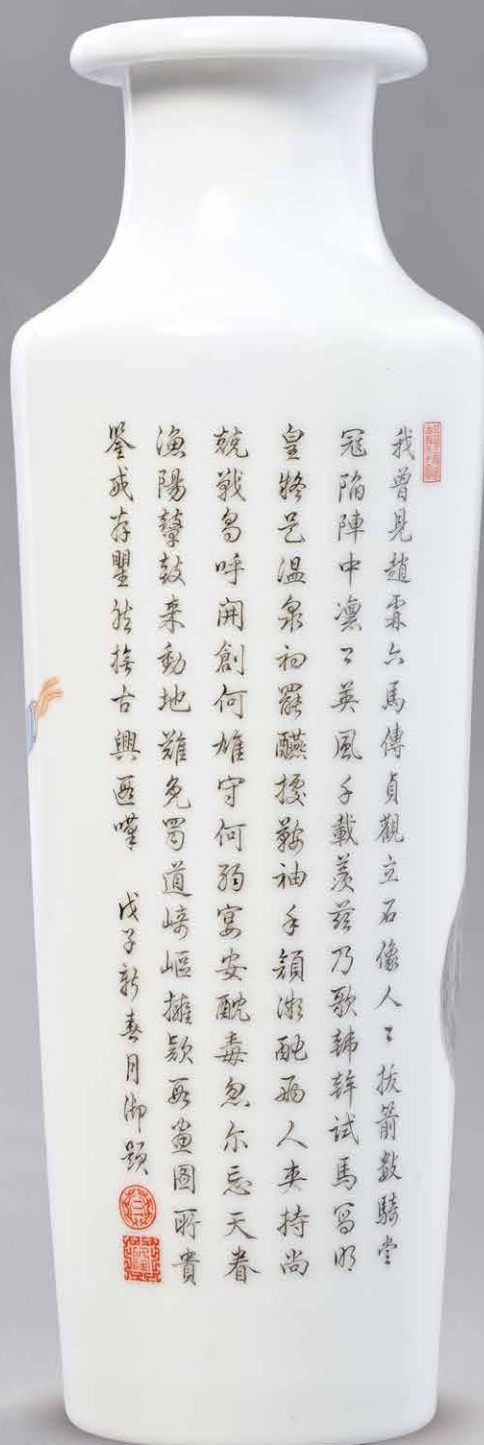 我曾見趙霖六馬傳貞觀立石像人々拔箭數騎堂
冠陷陣中凛々英風千載羨茲乃歌韩幹試馬寫明
皇將是温泉初罷醼據鞍袖手顏微酡兩人夾持尚
兢戰烏呼開創何雄守何弱宴安酖毒忽尔忘天眷
漁陽鼙鼓来動地難免蜀道崎嶇擁歎畫圖所貴
鑒戒存然撫古興嘆 戊子新春月御題